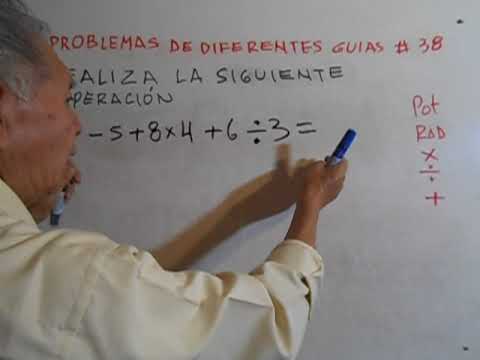 PROBLEMAS DE DIFERENTES GUIAS # 38
EALIZA LA SIGUIENTE
PERACIÓN
-5+8x4+6÷3=
Pot
RAD
x
÷
+